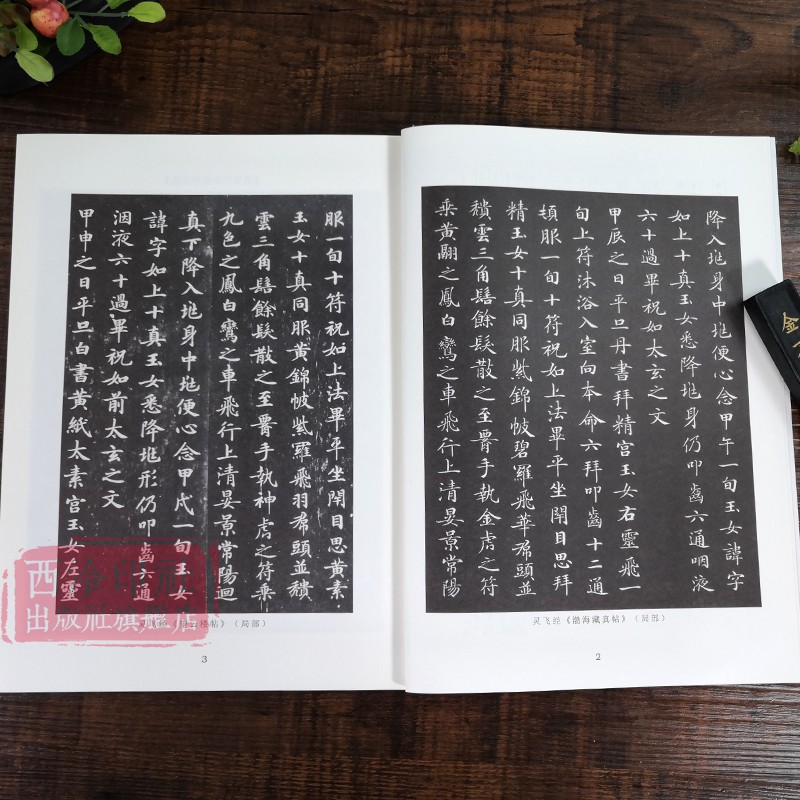 降入垗身中垗便心念甲午一旬玉女諱字
如上十真玉女悉降垗身仍叩齒六通咽液
六十過畢祝如太玄之文
甲辰之日平旦丹書拜精宫玉女右靈飛一
旬上符沐浴入室向本命六拜叩齒十二通
頓服一旬十符祝如上法畢平坐閉目思拜
精玉女十真同服紫錦帔碧羅飛華帬頭並
穨雲三角髻餘髮散之至腰手執金虎之符
乘黄翮之鳳白鸞之車飛行上清晏景常陽
灵飞经《渤海藏真帖》（局部）
2
服一旬十符祝如上法畢平坐閉目思黄素
玉女十真同服黄錦帔紫羅飛羽帬頭並穨
雲三角髻餘髮散之至腰手執神虎之符乘
九色之鳳白鸞之車飛行上清晏景常陽迴
真下降入垗身中垗便心念甲戌一旬玉女
諱字如上十真玉女悉降垗形仍叩齒六通
咽液六十過畢祝如前太玄之文
甲申之日平旦白書黄紙太素宫玉女左靈
楼帖》（局部）
3
西泠印社
出版社旗舰店
金